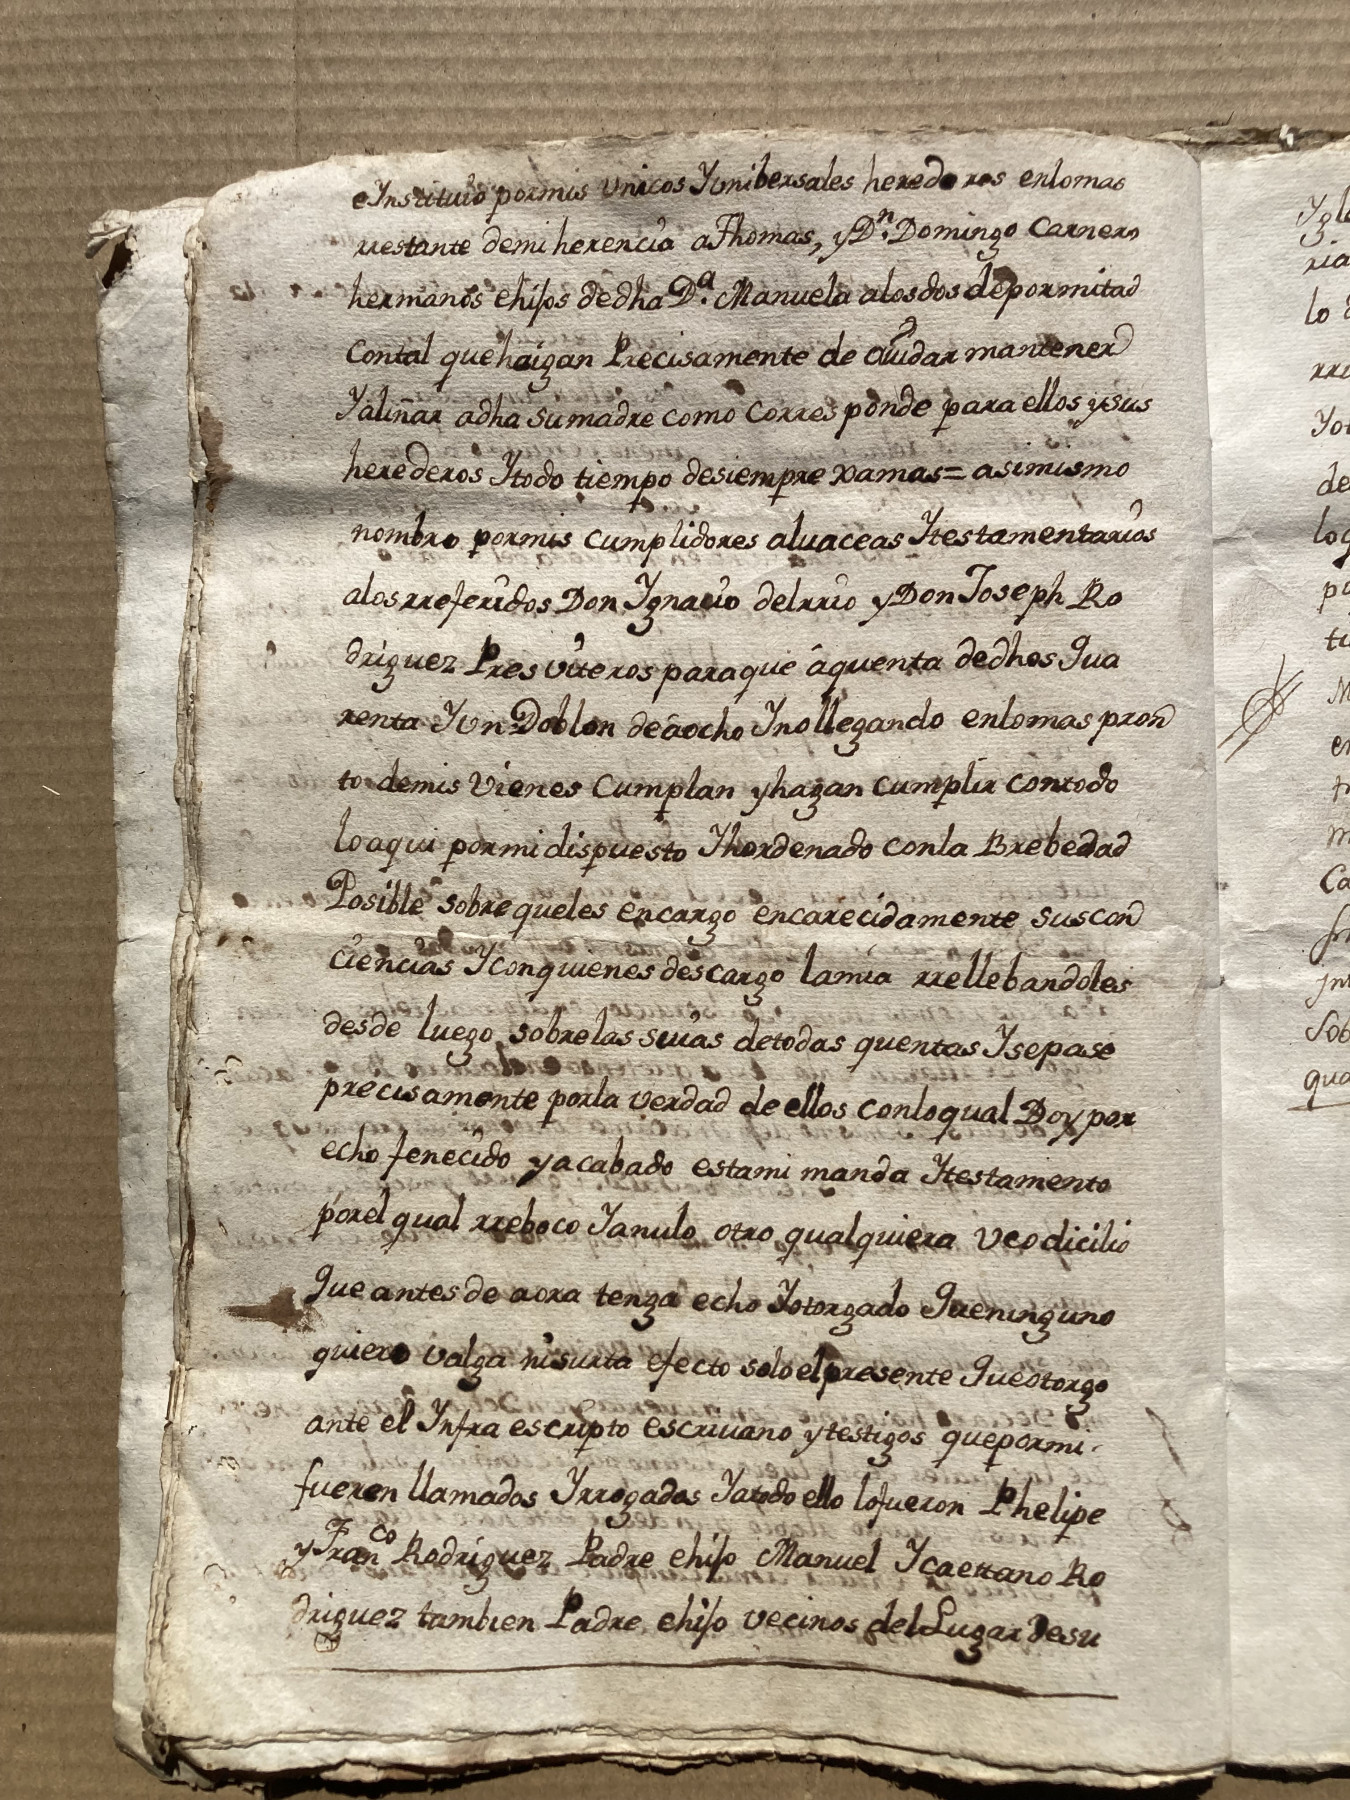 eYnstituio pormis vnicos Yvnibersales herederos enlomas
rrestante demi herencia aThomas, y Dn. Domingo Carnero
hermanos ehijos dedha Da. Manuela alosdos depormitad
Contal quehaigan Precisamente de cuidar mantener
Yaliñar adha sumadre como Corresponde para ellos ysus
herederos Ytodo tiempo desiempre xamas = asimismo
nombro pormis cumplidores aluaceas Ytestamentarios
alosrreferidos Don Ygnacio delrrio y Don Joseph Ro
driguez Presviteros paraque áquenta dedhos Qua
renta Yvn Doblon deâocho Ynollegando enlomas pron
to demis Vienes Cumplan yhagan cumplir contodo
loaqui pormi dispuesto Yhordenado conla Brebedad
Posible sobrequeles encargo encarecidamente suscon
ciencias Yconquienes descargo lamia rrellebandoles
desde luego sobrelas suias detodas quentas Ysepase
precisamente porla verdad de ellos conloqual Doy por
echo fenecido yacabado estami manda Ytestamento
porel qual rreboco Yanulo otro qualquiera Vcodicilio
Que antes de aora tenga echo Yotorgado Queninguno
quiero valga nisurta efecto solo elpresente Queotorgo
ante el Ynfra escripto escriuano ytestigos quepormi
fueren llamados Yrrogados Yatodo ello lofueron Phelipe
y Franco Rodriguez Padre ehijo Manuel Ycaettano Ro
driguez tambien Padre ehijo vecinos del Lugar Desu